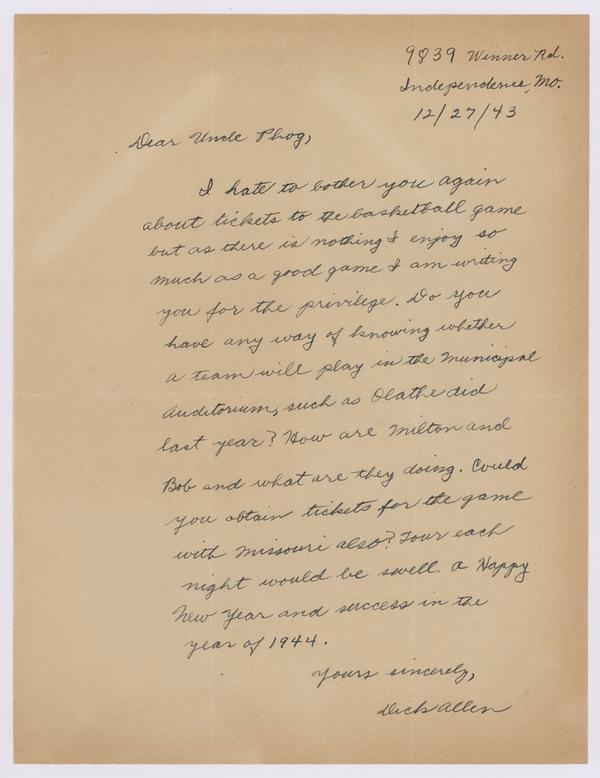 9839 Winner Rd.
Independence, Mo.
12/27/43
Dear Uncle Phog,
I hate to bother you again
about tickets to the basketball game
but as there is nothing I enjoy so
much as a good game I am writing
you for the privilege. Do you
have any way of knowing whether
a team will play in the Municipal
Auditorium, such as Olathe did
last year? How are Milton and
Bob and what are they doing. Could
you obtain tickets for the game
with Missouri also? Four each
night would be swell. A Happy
New Year and success in the
year of 1944.
Yours sincerely,
Dick Allen